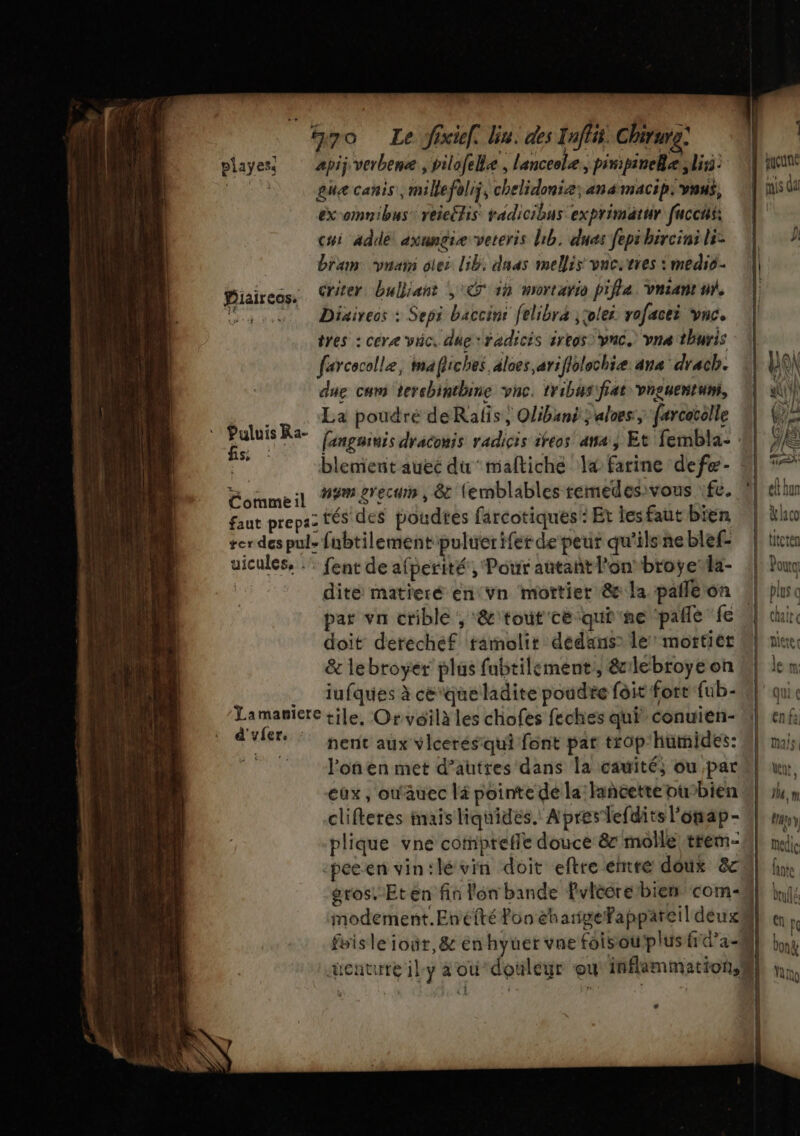 770 Le sixies. liu. des Instit. Chirurg.
playes. apij verbenæ, pilosellæ, lanceolæ, pimpinellæ, lin-
guæ canis, millefolij, chelidoniæ, ana macip. vnus,
ex omnibus reiectis radicibus exprimatur succus;
cui adde axungiæ veteris lib. duas sepi hircini li-
bram vnam olei lib. duas mellis vnc. tres : medio-
criter bulliant, & in mortario pista vniantur.
Diaireos. Diaireos : Sepi baccini selibra, olei rosacei vnc.
tres : ceræ vnc. duę radicis ireos vnc. vna thuris
sarcocollæ, mastiches aloes, aristolochiæ ana drach.
duę cum terebinthine vnc. tribus fiat vnguentum,
Puluis Ra- La poudre de Rasis, Olibani, aloes, sarcocolle
sis. sanguinis draconis radicis ireos ana, Et sembla-
blement auec du mastiche la farine de fœ-
Comme il num grecum, & semblables remedes vous se.
faut prepa- tés des poudres sarcotiques : Et les faut bien
rer des pul- subtilement puluerifer de peur qu'ils ne blef-
uicules. sent de asperité, Pour autant l'on broye la-
dite matiere en vn mortier & la passe on
par vn crible, & tout ce qui ne passe se
doit derechef ramolir dedans le mortier
& le broyer plus subtilement, & le broye on
iusques à ce que ladite poudre soit fort sub-
La maniere tile. Or voilà les choses seches qui conuien-
d'vser. nent aux vlceres qui sont par trop humides:
l'on en met d'autres dans la cauité, ou par
eux, ou auec la pointe de la lancette ou bien
clisteres mais liquides. Apres lesdits l'on ap-
plique vne compresse douce & molle trem-
pee en vin : le vin doit estre entre doux &
gros. Et en fin l'on bande l'vlcere bien com-
modement. En esté l'on change l'appareil deux
fois le iour, & en hyuer vne fois ou plus si d'a-
uenture il y a ou douleur ou inflammation,